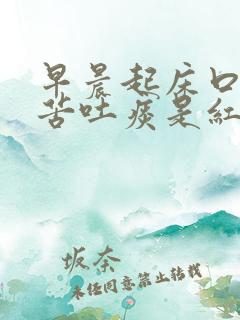 早晨起床口
苦吐痰是红
坂本
未经同意禁止转载